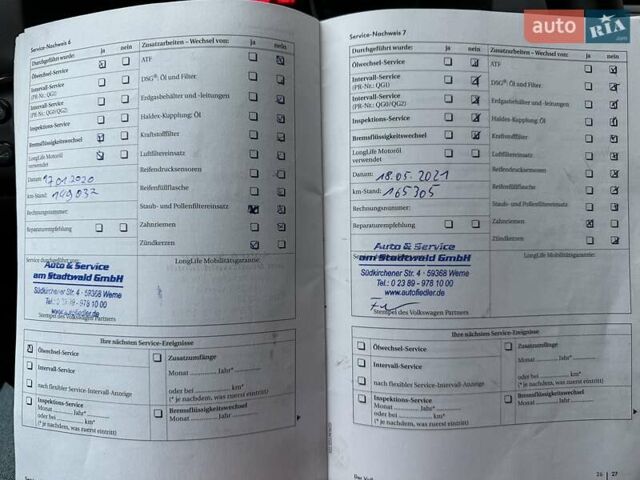 auto RIA.com
Service-Nachweis 6
Durchgeführt wurde: ja nein
Ölwechsel-Service
Intervall-Service
(PR-Nr.: QG1)
Intervall-Service
(PR-Nr.: QG0/QG2)
Inspektions-Service
Bremsflüssigkeitswechsel
LongLife Motoröl
verwendet
Datum: 17.01.2020
km-Stand: 149 032
Rechnungsnummer:
Reparaturempfehlung
Zusatzarbeiten – Wechsel von: ja nein
ATF
DSG®: Öl und Filter
Erdgasbehälter und -leitungen
Haldex-Kupplung: Öl
Kraftstofffilter
Luftfiltereinsatz
Reifendrucksensoren
Reifenfüllflasche
Staub- und Pollenfiltereinsatz
Zahnriemen
Zündkerzen
Service durchgeführt von:
LongLife Mobilitätsgarantie:
Auto & Service
am Stadtwald GmbH
Südkirchener Str. 4 · 59368 Werne
Tel.: 0 23 89 - 978 10 00
www.autofiedler.de
Stempel des Volkswagen Partners
Ihre nächsten Service-Ereignisse
Ölwechsel-Service
Intervall-Service
nach flexibler Service-Intervall-Anzeige
Inspektions-Service
Monat ............ Jahr*............
oder bei ............ km*
(* je nachdem, was zuerst eintritt)
Zusatzumfänge
Monat ............ Jahr*............
oder bei ............ km*
(* je nachdem, was zuerst eintritt)
Bremsflüssigkeitswechsel
Monat ............ Jahr ............
Service-Nachweis 7
Durchgeführt wurde: ja nein
Ölwechsel-Service
Intervall-Service
(PR-Nr.: QG1)
Intervall-Service
(PR-Nr.: QG0/QG2)
Inspektions-Service
Bremsflüssigkeitswechsel
LongLife Motoröl
verwendet
Datum: 18.05.2021
km-Stand: 165305
Rechnungsnummer:
Reparaturempfehlung
Zusatzarbeiten – Wechsel von:
ATF
DSG®: Öl und Filter
Erdgasbehälter und -leitungen
Haldex-Kupplung: Öl
Kraftstofffilter
Luftfiltereinsatz
Reifendrucksensoren
Reifenfüllflasche
Staub- und Pollenfiltereinsatz
Zahnriemen
Zündkerzen
LongLife Mobilitätsgarantie:
Auto & Service
am Stadtwald GmbH
Südkirchener Str. 4 · 59368 Werne
Tel.: 0 23 89 - 978 10 00
www.autofiedler.de
Stempel des Volkswagen Partners
Ihre nächsten Service-Ereignisse
Ölwechsel-Service
Intervall-Service
nach flexibler Service-Intervall-Anzeige
Inspektions-Service
Monat ............ Jahr*............
oder bei ............ km*
(* je nachdem, was zuerst eintritt)
Zusatzumfänge
Monat ............ Jahr*............
oder bei ............ km*
(* je nachdem, was zuerst eintritt)
Bremsflüssigkeitswechsel
Monat ............ Jahr ............
26 27